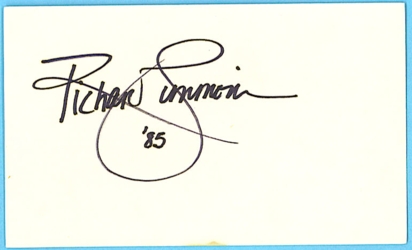 Richard Simmons
'85